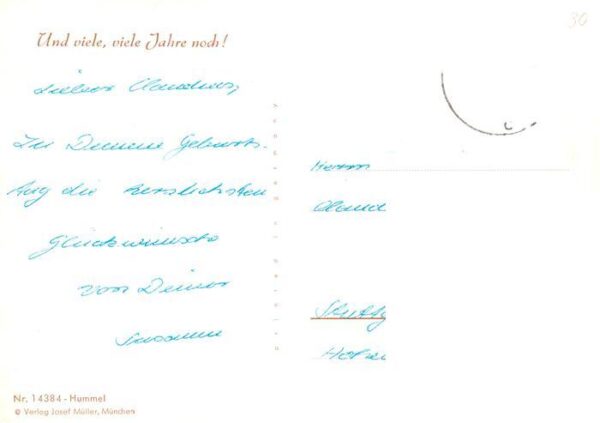 30
Und viele, viele Jahre noch!
Lieber Claudius,
Zu Deinem Geburts-
tag die herzlichsten
Glückwünsche
von Deiner
Susanne
Herrn
Claud
Stuttg
Nr. 14384 - Hummel
© Verlag Josef Müller, München